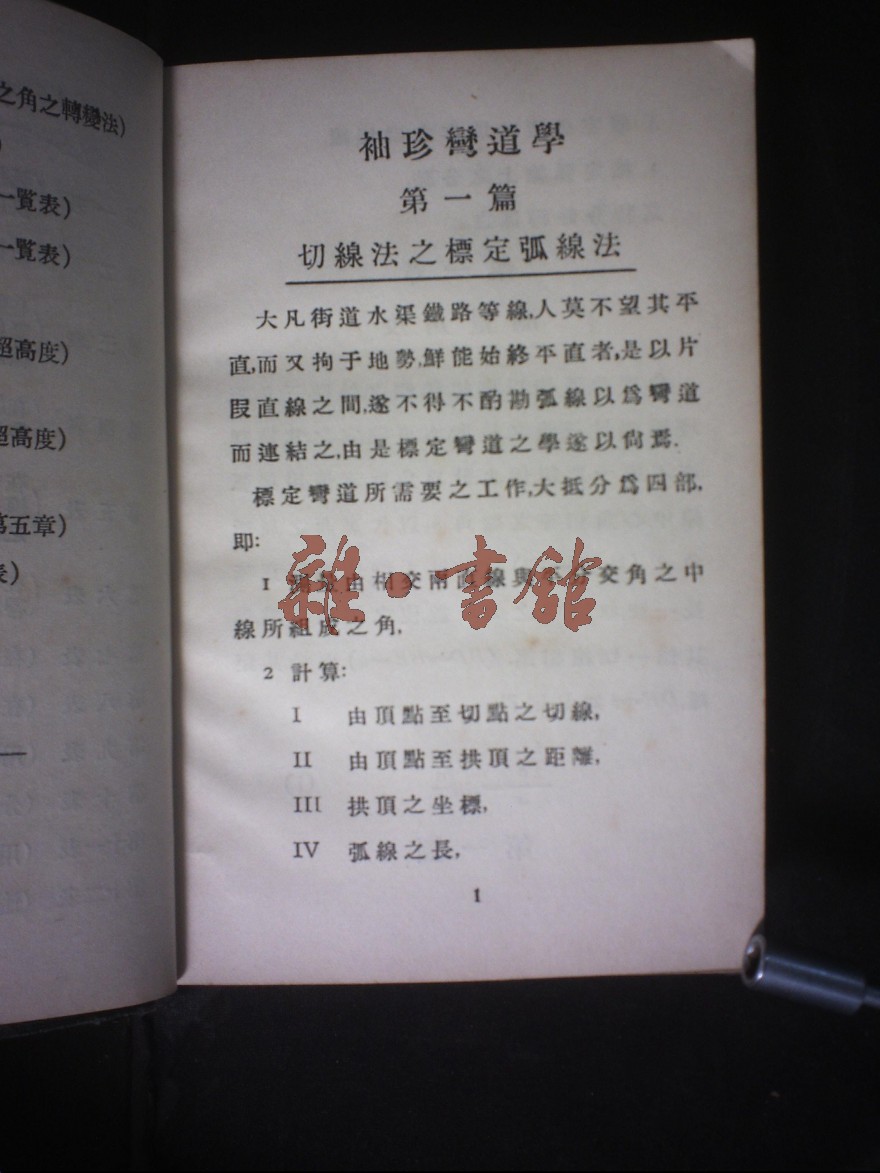 之角之轉變法)
)
一覽表)
一覽表)
超高度)
超高度)
第五章)
表)
袖珍彎道學
第一篇
切線法之標定弧線法
大凡街道水渠鐵路等線,人莫不望其平
直,而又拘于地勢,鮮能始終平直者,是以片
段直線之間,遂不得不酌勘弧線以爲彎道
而連結之,由是標定彎道之學遂以尙焉.
標定彎道所需要之工作,大抵分爲四部,
即:
1 由相交兩直線與 交角之中
線所組成之角,
2 計算:
I 由頂點至切點之切線,
II 由頂點至拱頂之距離,
III 拱頂之坐標,
IV 弧線之長,
1
雜·書館